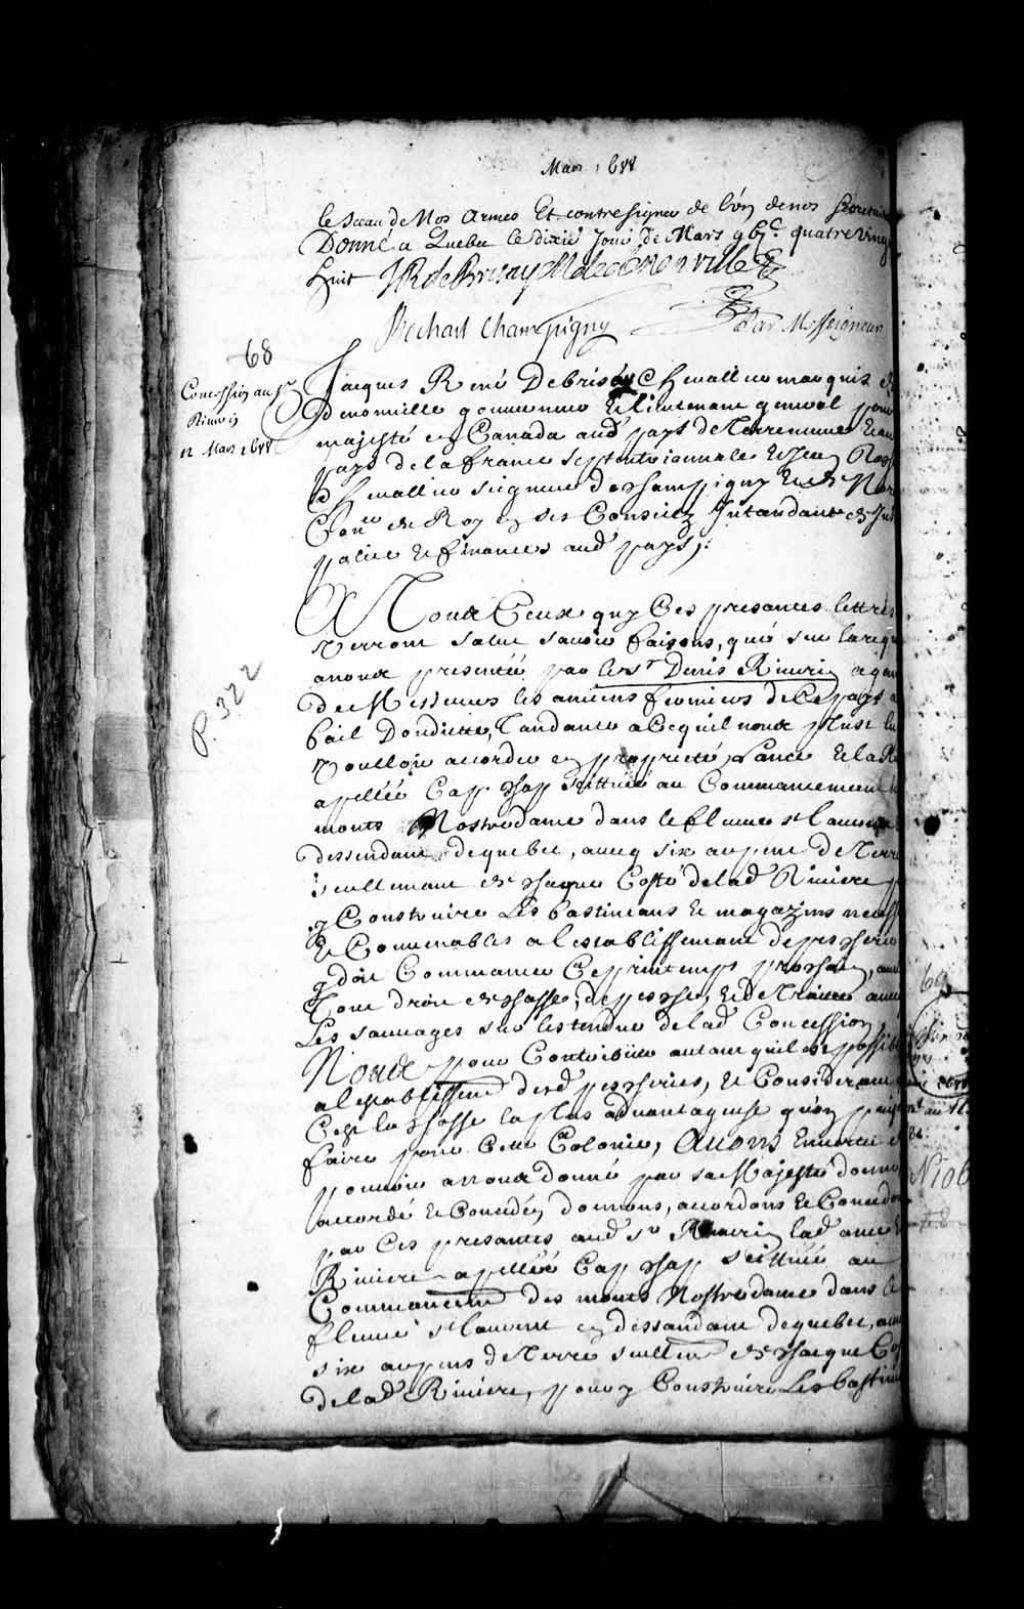 Mars 1688
le Sceau de Nos Armes Et contresigner de l'un de nos Secretai
Donné a Quebec le dixie Jour De Mars gbjc quatre ving
huit JR de Brisay M de denonville
Bochart Champigny
Par Messeigneurs
68
Concession au Sr
Riverin
12 Mars 1688
Jacques René Debrisay Chevallier marquis de
denonville gouverneur & lieutenant general pour
majesté en Canada aud pays de Terreneuve & au
pays de la france septentrionnalle & Jean Boch
Chevallier seigneur de Champigny Noroy
Coner du Roy en ses Conseilz Intandant de Jus
police & finances aud pays;
A Tous Ceux quy Ces presantes lettres
verront salut savoir faisons, que sur la requ
a nous presentée par le Sr Denis Riverin
De Messieurs les anciens fermiers de Ce pays
P. 322
bail Doudiette, Tandante a Ce qu'il nous pluse luy
Voulloir accorder en propriété, l'ance & la R
apellée Cap Chap scittuée au Commancement
monts Nostredame dans le fleuve st laurens
dessendant de quebec, avecq six arpens de Terre
seullemant de Chaque Costé de lad Riviere p
y Construire Les bastimans & magazins necess
& Convenables a lestablissemant de pescherie
qdoit Commancer Ce printemps prochain, avec
Tout droit de Chasse, de pesche, & de Traitte avec
Les sauvages sur lestendue de lad Concession,
Nous pour Contribuer autant qu'il est possible
a lestablissemt desd pescheries, & Considerant
C'est la Chosse la plus advantageuse qu'on puisse
faire pour Cette Colonie, Avons En vertu du
pouvoir a nous donné par sa Majesté donné
accordé & Concédé, donnons, accordons & Concedons
par Ces presantes aud Sr Riverin, lad ance &
Riviere apellée Cap Chap scittuée au
Commancemt des monts Nostredame dans le
fleuve st laurent en dessandant de quebec, avec
six arpens de Terre seullemt de Chaque Cos
de lad Riviere, pour y Construire Les bastim
69
N106